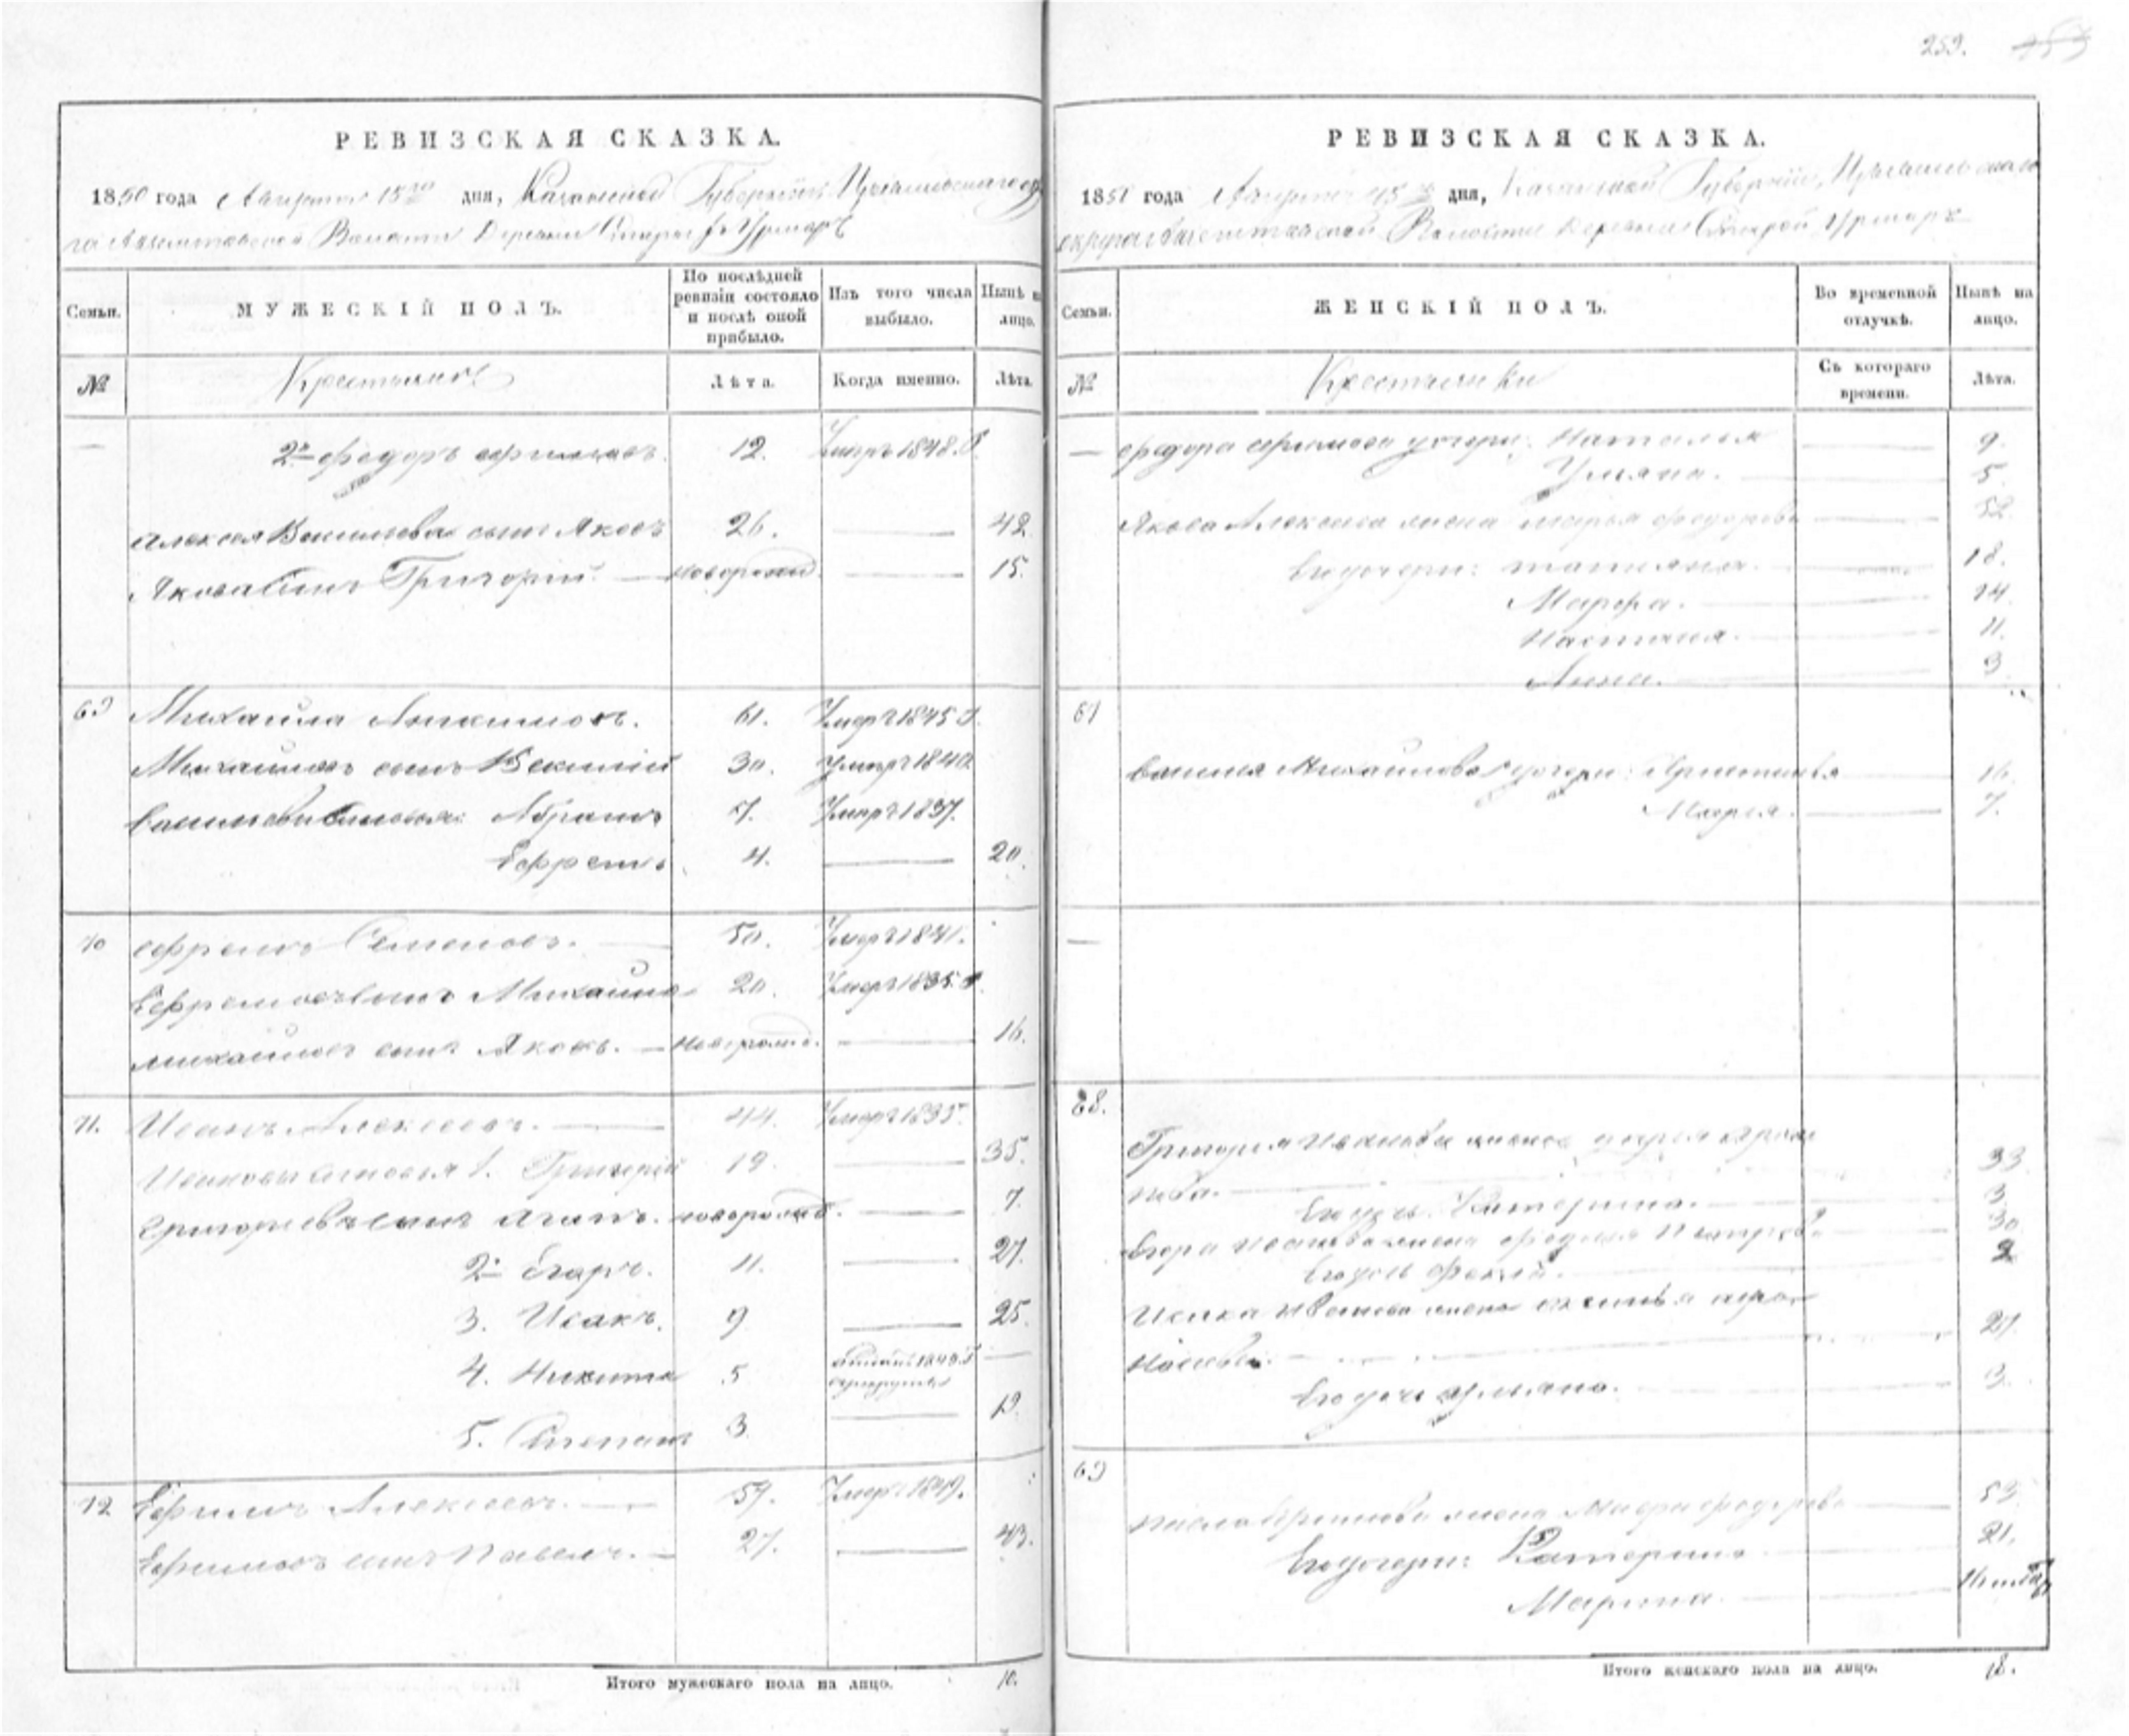 259.
РЕВИЗСКАЯ СКАЗКА.
1850 года Августа 15 дня, Казанской Губерніи Цивильскаго
Волости Деревни Старой Урмаръ
Семьи. МУЖЕСКІЙ ПОЛЪ. По послѣдней ревизіи состояло и послѣ оной прибыло. Изъ того числа выбыло. Нынѣ на лицо.
№ Крестьяне Лѣта. Когда именно. Лѣта.
— 2й Федоръ 12. Умеръ 1848.
Алексея Васильева сынъ Яковъ 26. — 42
Якова Сынъ Григорій — новорожд. — 15.
69 Михаила 61. Умеръ 1845
Михайловъ сынъ Василій 30. Умеръ 1840
Абрамъ 7. Умеръ 1837.
Ефремъ 4. — 20.
70 Ефремъ Семеновъ. 50. Умеръ 1841.
Ефремовъ сынъ Михаила 20. Умеръ 1835.
Михайловъ сынъ Яковъ. — новорожд. — 16.
71. Иванъ Алексеевъ. — 44. Умеръ 1835.
Ивановы сыновья 1. Григорій 19. — 35.
Григорьевъ сынъ новорожд. — 7.
2й Егоръ. 11. — 27.
3. Исакъ. 9 — 25.
4. Никита 5 1843 —
5. Степанъ 3 — 19.
72 Ефимъ Алексеевъ. — 57. Умеръ 1849.
Ефимовъ сынъ Павелъ. — 27. — 43.
Итого мужескаго пола на лицо. 10.
РЕВИЗСКАЯ СКАЗКА.
1850 года Августа 15 дня, Казанской Губерніи, Цивильскаго
округа Волости Деревни Старой Урмаръ
Семьи. ЖЕНСКІЙ ПОЛЪ. Во временной отлучкѣ. Нынѣ на лицо.
№ Крестьянки Съ котораго времени. Лѣта.
— Федора дочери: Наталья — 9.
Ульяна. — 5.
Якова Алексеева жена Марья Федорова — 52.
Его дочери: Татьяна. — 18.
Марфа. — 14.
Настасья. — 11.
Анна. — 3.
67
Василья Михайлова дочери: — 16.
Марья. — 7.
—
68.
Григорья Иванова жена
нова. — 33.
Его дочь Катерина. — 3.
Егора Иванова жена Федосья Петрова — 30
Его дочь — 2
Исака Иванова жена
— 27.
Его дочь Ульяна. — 3.
69
Павла Ефимова жена Федорова — 53.
Его дочери: Катерина — 21.
Марина. —
Итого женскаго пола на лицо. 18.